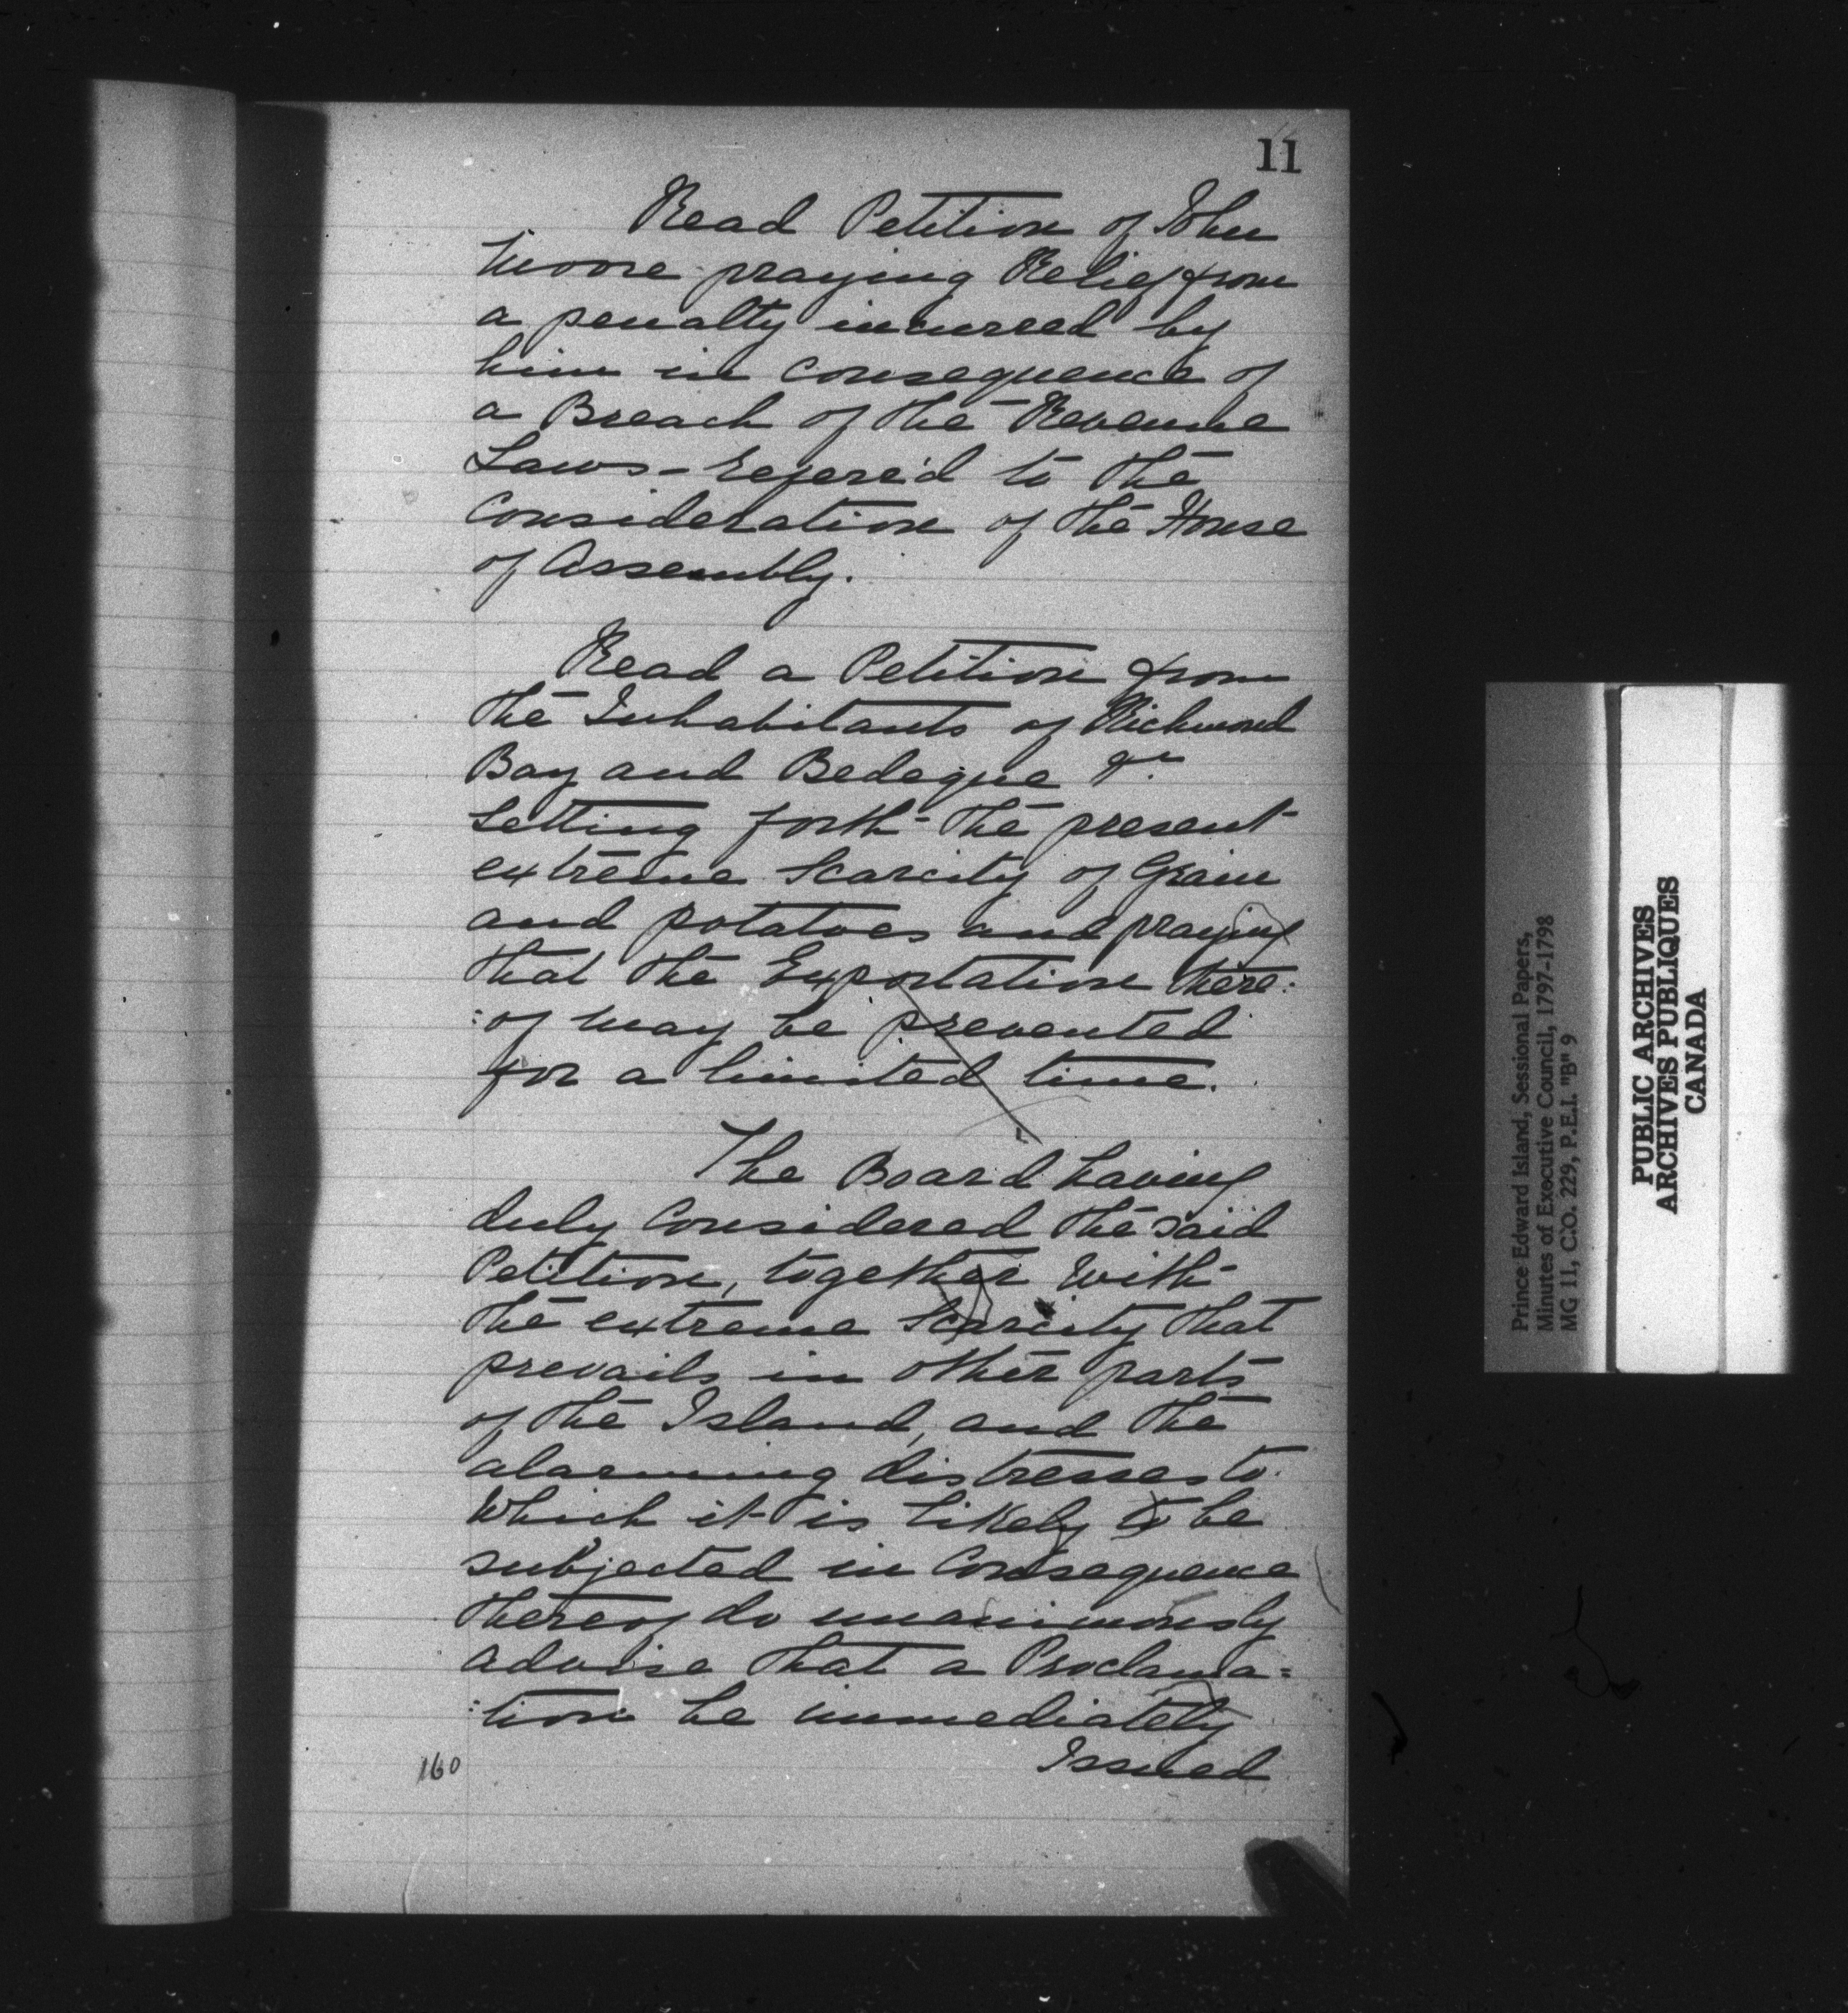 11
Read Petition of John
Moore praying Relief from
a penalty incurred by
him in consequence of
a Breach of the Revenue
Laws - refere'd to the
Consideration of the House
of Assembly.
Read a Petition from
the Inhabitants of Richmond
Bay and Bedeque &c.
Setting forth the present
extreme Scarcity of Grain
and potatoes and praying
that the Exportation there:
:of may be prevented
for a limited time.
The Board having
duly Considered the said
Petition, together with
the extreme Scarcity that
prevails in other parts
of the Island, and the
alarming distresses to
Which it is likely to be
subjected in Consequence
thereof do unanimously
advise that a Proclama=
:tion be immediately
Issued
160
Prince Edward Island, Sessional Papers,
Minutes of Executive Council, 1797-1798
MG 11, C.O. 229, P.E.I. "B" 9
PUBLIC ARCHIVES
ARCHIVES PUBLIQUES
CANADA